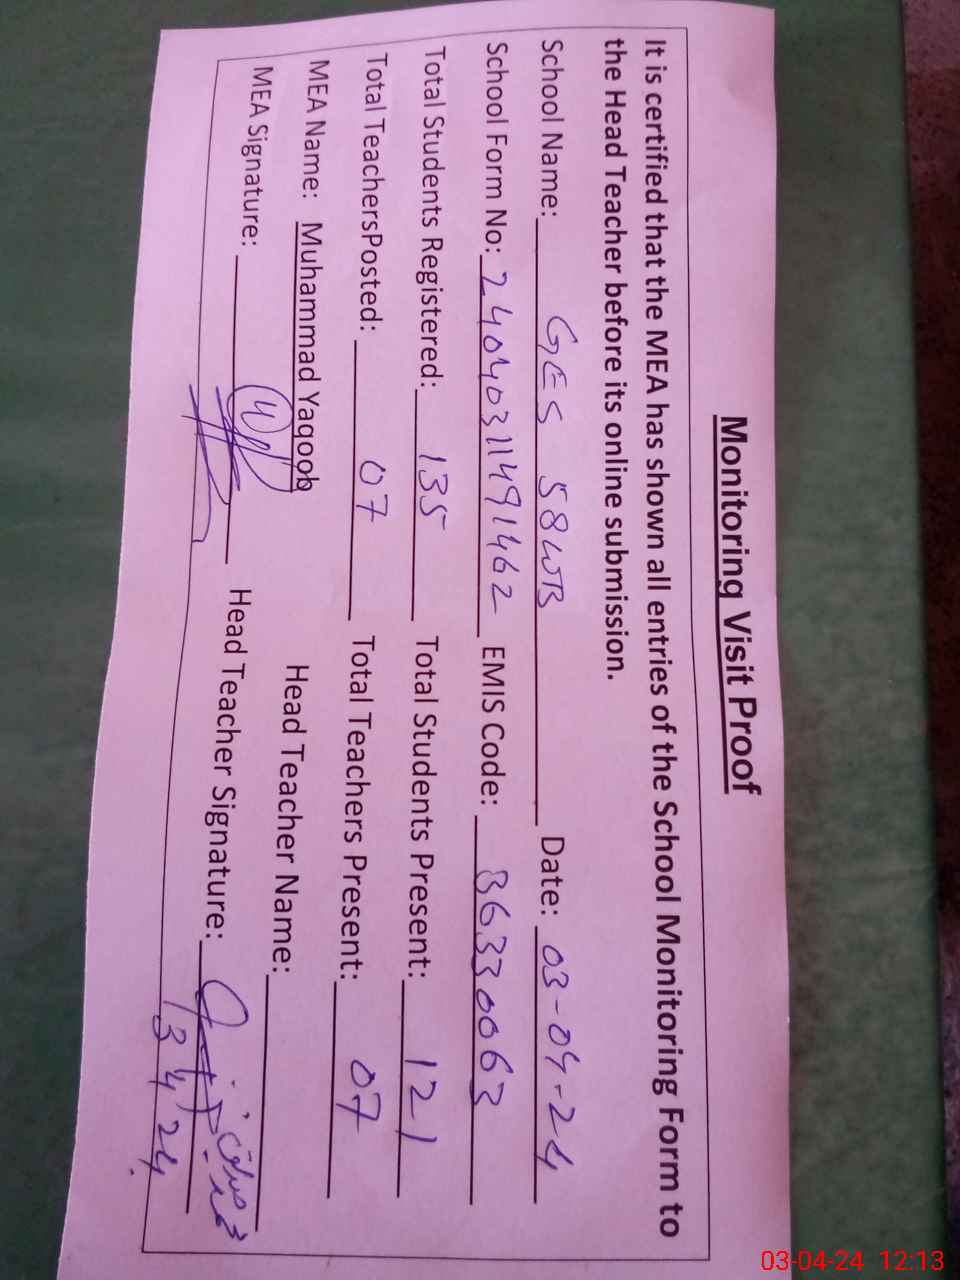 Monitoring Visit Proof
It is certified that the MEA has shown all entries of the School Monitoring Form to
the Head Teacher before its online submission.
School Name: GES 58WB Date: 03-04-24
School Form No: 24040311491462 EMIS Code: 36330063
Total Students Registered: 135 Total Students Present: 121
Total TeachersPosted: 07 Total Teachers Present: 07
MEA Name: Muhammad Yaqoob Head Teacher Name:
MEA Signature: Head Teacher Signature:
3 4 24
03-04-24 12:13